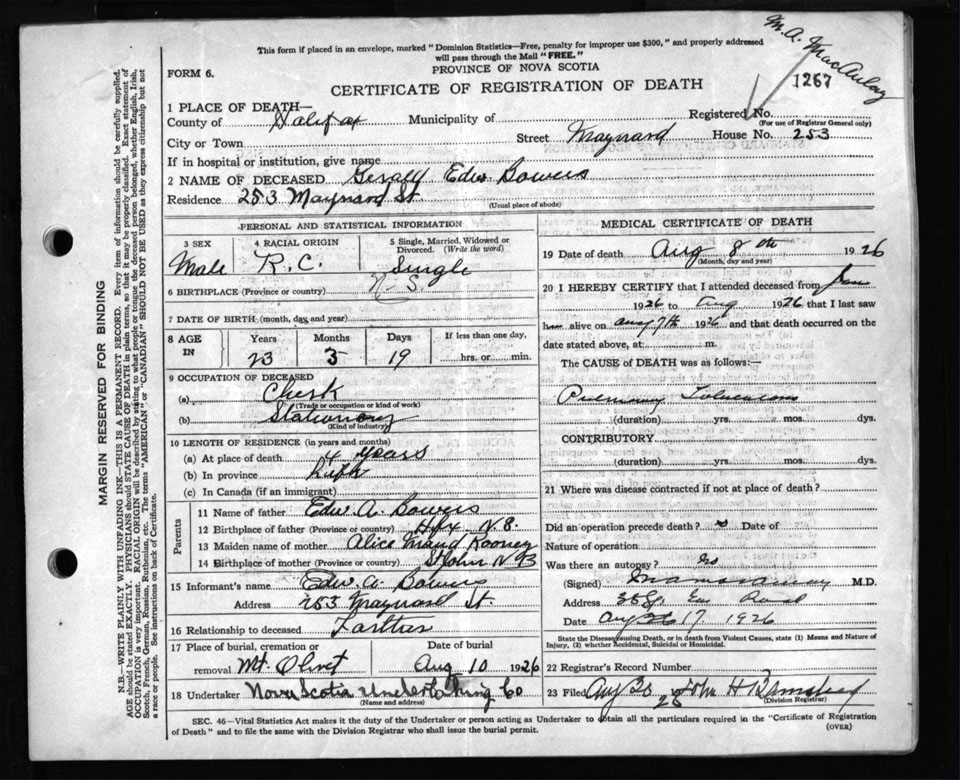 M. A. MacAulay
This form if placed in an envelope, marked "Dominion Statistics—Free, penalty for improper use $300," and properly addressed
will pass through the Mail "FREE."
PROVINCE OF NOVA SCOTIA
FORM 6.
CERTIFICATE OF REGISTRATION OF DEATH
1267
1 PLACE OF DEATH—
Registered No.
(For use of Registrar General only)
County of Halifax Municipality of
City or Town Street Maynard House No. 253
If in hospital or institution, give name
2 NAME OF DECEASED Gerald Edw Bowers
Residence 253 Maynard St.
(Usual place of abode)
PERSONAL AND STATISTICAL INFORMATION
3 SEX 4 RACIAL ORIGIN 5 Single, Married, Widowed or
Divorced. (Write the word)
Male R.C. Single
6 BIRTHPLACE (Province or country) N.S.
7 DATE OF BIRTH (month, day and year)
8 AGE IN Years Months Days If less than one day
23 3 19 hrs. or min.
9 OCCUPATION OF DECEASED
(a) Clerk
(Trade or occupation or kind of work)
(b) Stationary
(Kind of industry)
10 LENGTH OF RESIDENCE (in years and months)
(a) At place of death 4 years
(b) In province Life
(c) In Canada (if an immigrant)
Parents
11 Name of father Edw A. Bowers
12 Birthplace of father (Province or country) Hfx N.S.
13 Maiden name of mother Alice Maud Rooney
14 Birthplace of mother (Province or country) St John N B
15 Informant's name Edw A. Bowers
Address 253 Maynard St.
16 Relationship to deceased Farther
17 Place of burial, cremation or Date of burial
removal Mt. Olivet Aug 10 1926
18 Undertaker Nova Scotia Undertaking Co
(Name and address)
MEDICAL CERTIFICATE OF DEATH
19 Date of death Aug 8th 1926
(Month, day and year)
20 I HEREBY CERTIFY that I attended deceased from Jan
1926 to Aug 1926 that I last saw
him alive on Aug 7th 1926 and that death occurred on the
date stated above, at m.
The CAUSE OF DEATH was as follows:
Pulmonary Tuberculosis
(duration) yrs. mos. dys.
CONTRIBUTORY
(duration) yrs. mos. dys.
21 Where was disease contracted if not at place of death?
Did an operation precede death? no Date of
Nature of operation
Was there an autopsy? no
(Signed) M.D.
Address
Date Aug 17 1926
State the Disease causing Death, or in death from Violent Causes, state (1) Means and Nature of
Injury, (2) whether Accidental, Suicidal or Homicidal.
22 Registrar's Record Number
23 Filed Aug 20 John H
(Division Registrar)
SEC. 46—Vital Statistics Act makes it the duty of the Undertaker or person acting as Undertaker to obtain all the particulars required in the "Certificate of Registration
of Death" and to file the same with the Division Registrar who shall issue the burial permit. (OVER)
MARGIN RESERVED FOR BINDING
N.B.—WRITE PLAINLY WITH UNFADING INK—THIS IS A PERMANENT RECORD. Every item of information should be carefully supplied.
AGE should be stated EXACTLY. PHYSICIANS should STATE CAUSE OF DEATH in plain terms, so that it may be properly classified. Exact statement of
OCCUPATION is very important. RACIAL ORIGIN will be described by stating to what people or tongue the deceased person belonged, whether English, Irish,
Scotch, French, German, Russian, Ruthenian, etc. The terms "AMERICAN" or "CANADIAN" SHOULD NOT BE USED as they express citizenship but not
a race or people. See instructions on back of Certificate.